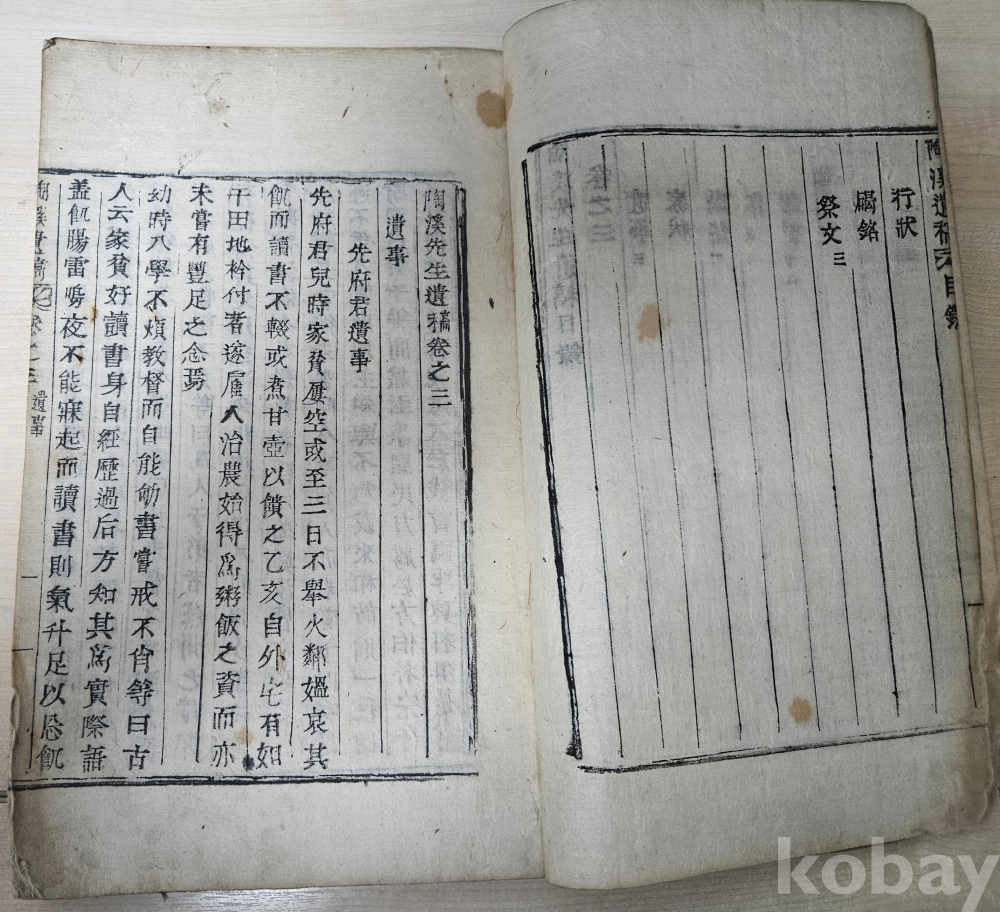 陶溪遺稿 目錄
行狀
碣銘
祭文三
一
陶溪先生遺稿卷之三
遺事
先府君遺事
先府君兒時家貧屢空或至三日不舉火鄰媼哀其
飢而讀書不輟或煮甘壺以饋之乙亥自外宅有如
干田地衿付者遂雇人治農始得爲粥飯之資而亦
未嘗有豐足之念焉
幼時入學不煩教督而自能劬書嘗戒不肖等曰古
人云家貧好讀書身自經歷過后方知其爲實際語
盖飢腸雷鳴夜不能寐起而讀書則氣升足以忘飢
陶溪遺稿 卷之三 遺事
一
kobay